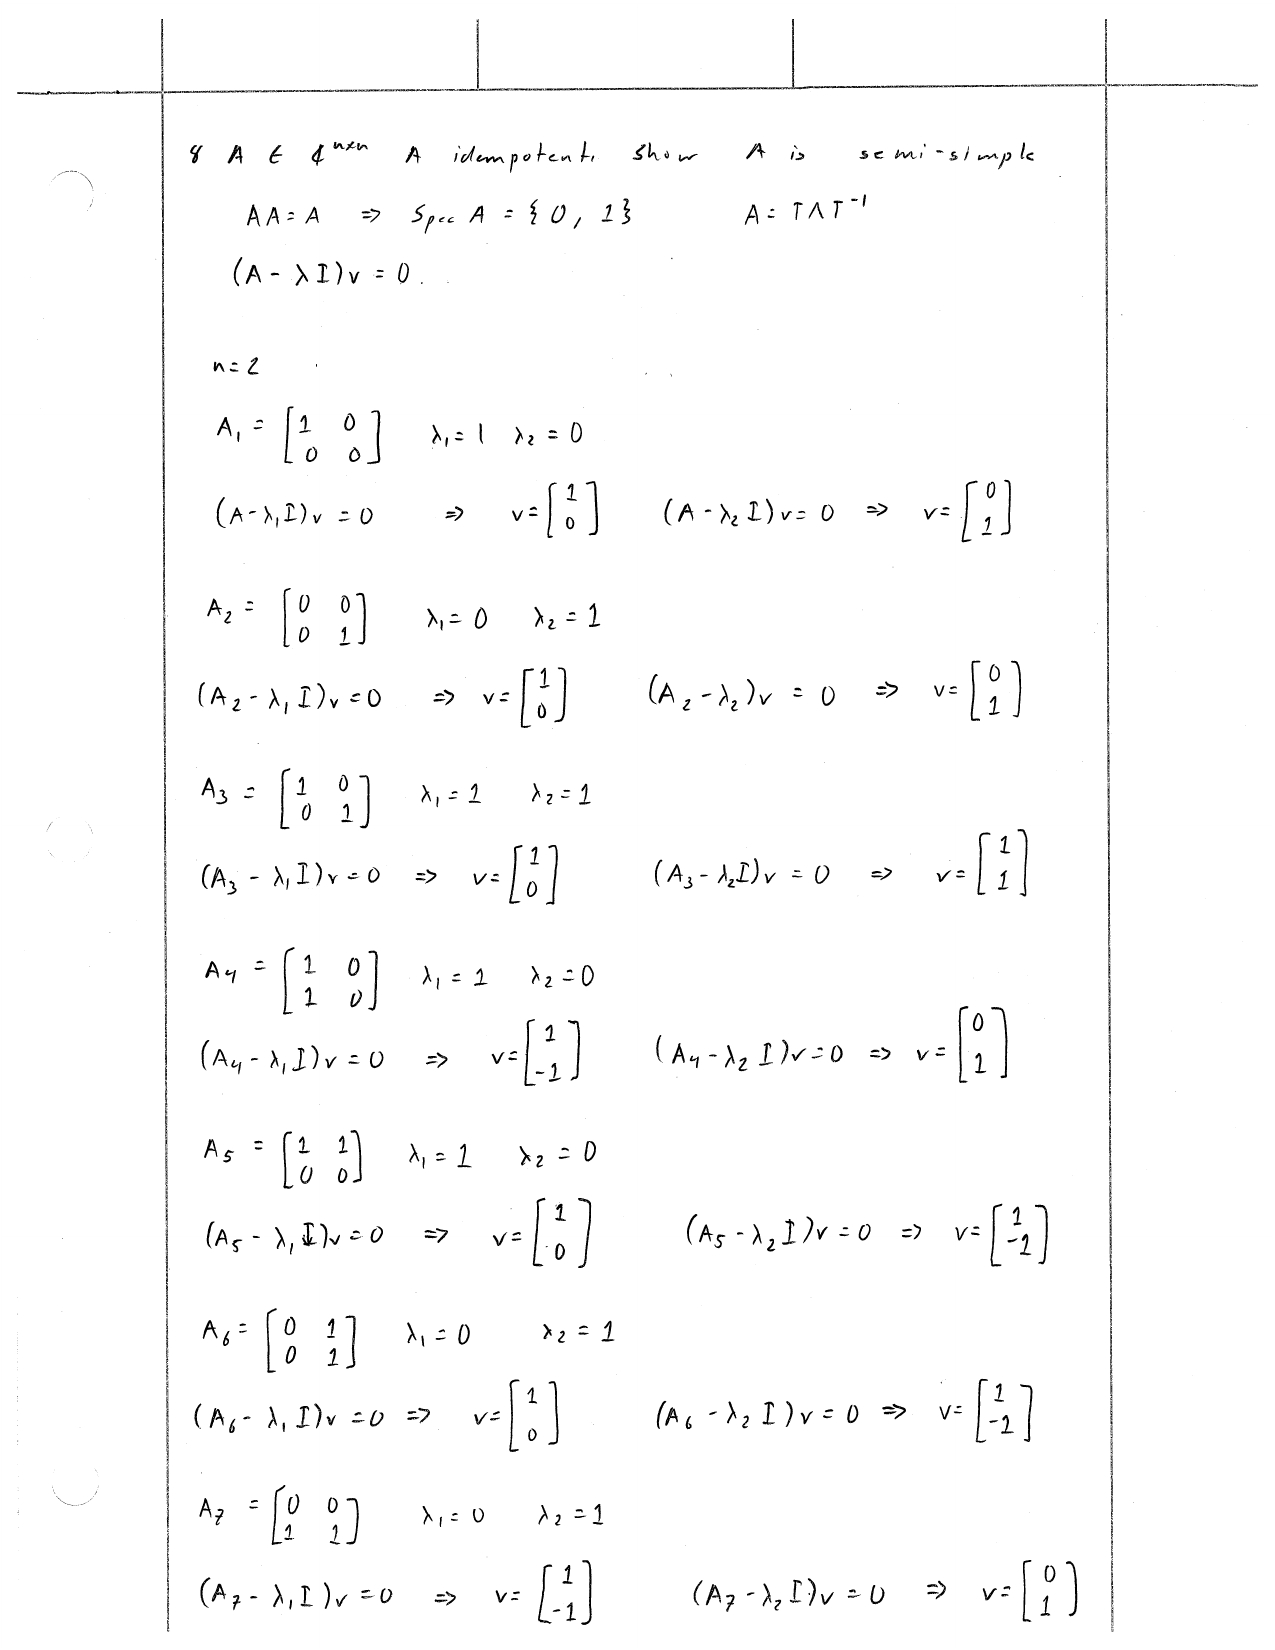 8 A ∈ ℂ^{n×n} A idempotent. Show A is semi-simple
AA = A ⇒ Spec A = {0, 1} A = TΛT^{-1}
(A - λI)v = 0.
n = 2
A₁ = [1 0; 0 0] λ₁ = 1 λ₂ = 0
(A - λ₁I)v = 0 ⇒ v = [1; 0] (A - λ₂I)v = 0 ⇒ v = [0; 1]
A₂ = [0 0; 0 1] λ₁ = 0 λ₂ = 1
(A₂ - λ₁I)v = 0 ⇒ v = [1; 0] (A₂ - λ₂)v = 0 ⇒ v = [0; 1]
A₃ = [1 0; 0 1] λ₁ = 1 λ₂ = 1
(A₃ - λ₁I)v = 0 ⇒ v = [1; 0] (A₃ - λ₂I)v = 0 ⇒ v = [1; 1]
A₄ = [1 0; 1 0] λ₁ = 1 λ₂ = 0
(A₄ - λ₁I)v = 0 ⇒ v = [1; -1] (A₄ - λ₂I)v = 0 ⇒ v = [0; 1]
A₅ = [1 1; 0 0] λ₁ = 1 λ₂ = 0
(A₅ - λ₁I)v = 0 ⇒ v = [1; 0] (A₅ - λ₂I)v = 0 ⇒ v = [1; -1]
A₆ = [0 1; 0 1] λ₁ = 0 λ₂ = 1
(A₆ - λ₁I)v = 0 ⇒ v = [1; 0] (A₆ - λ₂I)v = 0 ⇒ v = [1; -1]
A₇ = [0 0; 1 1] λ₁ = 0 λ₂ = 1
(A₇ - λ₁I)v = 0 ⇒ v = [1; -1] (A₇ - λ₂I)v = 0 ⇒ v = [0; 1]